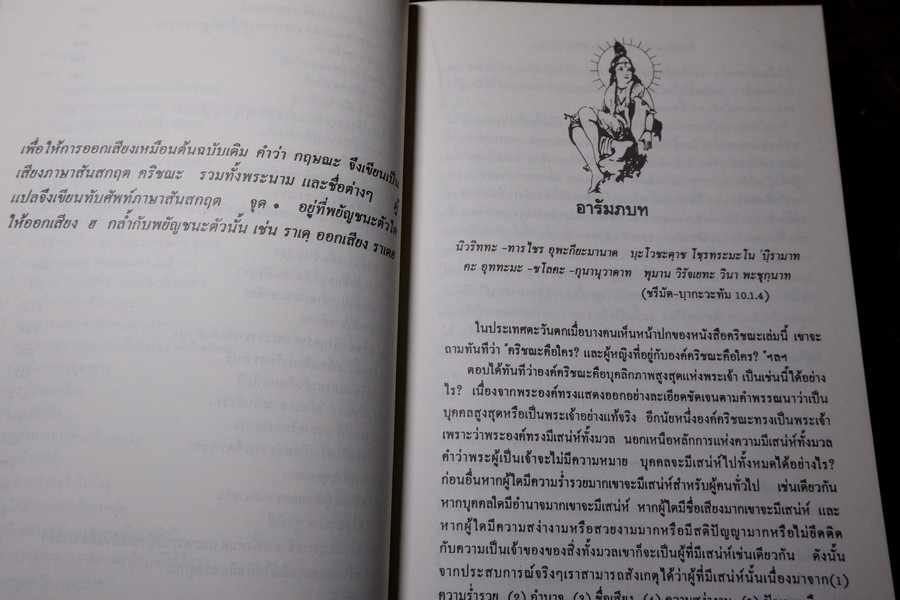 เพื่อให้การออกเสียงเหมือนต้นฉบับเดิม คำว่า กฤษณะ จึงเขียนเป็น
เสียงภาษาสันสกฤต คริชณะ รวมทั้งพระนาม และชื่อต่างๆ ผู้
แปลจึงเขียนทับศัพท์ภาษาสันสกฤต จุด • อยู่ที่พยัญชนะตัวใด
ให้ออกเสียง ฮ กล้ำกับพยัญชนะตัวนั้น เช่น ราเดฺ ออกเสียง ราเดฮ
อารัมภบท
นิวริททะ -ทารไชร อุพะกียะมานาด
คะ อุททะมะ -ชโลคะ -กุนานุวาดาท พุมาน วิรัจเยทะ วินา พะชุกฺนาท
(ชรีมัด-บฺากะวะทัม 10.1.4)
ในประเทศตะวันตกเมื่อบางคนเห็นหน้าปกของหนังสือคริชณะเล่มนี้ เขาจะ
ถามทันทีว่า "คริชณะคือใคร? และผู้หญิงที่อยู่กับองค์คริชณะคือใคร? "ฯลฯ
ตอบได้ทันทีว่าองค์คริชณะคือบุคลิกภาพสูงสุดแห่งพระเจ้า เป็นเช่นนี้ได้อย่าง
ไร? เนื่องจากพระองค์ทรงแสดงออกอย่างละเอียดชัดเจนตามคำพรรณนาว่าเป็น
บุคคลสูงสุดหรือเป็นพระเจ้าอย่างแท้จริง อีกนัยหนึ่งองค์คริชณะทรงเป็นพระเจ้า
เพราะว่าพระองค์ทรงมีเสน่ห์ทั้งมวล นอกเหนือหลักการแห่งความมีเสน่ห์ทั้งมวล
คำว่าพระผู้เป็นเจ้าจะไม่มีความหมาย บุคคลจะมีเสน่ห์ไปทั้งหมดได้อย่างไร?
ก่อนอื่นหากผู้ใดมีความร่ำรวยมากเขาจะมีเสน่ห์สำหรับผู้คนทั่วไป เช่นเดียวกัน
หากบุคคลใดมีอำนาจมากเขาจะมีเสน่ห์ หากผู้ใดมีชื่อเสียงมากเขาจะมีเสน่ห์ และ
หากผู้ใดมีความสง่างามหรือสวยงามมากหรือมีสติปัญญามากหรือไม่ยึดติด
กับความเป็นเจ้าของของสิ่งทั้งมวลเขาก็จะเป็นผู้ที่มีเสน่ห์เช่นเดียวกัน ดังนั้น
จากประสบการณ์จริงๆเราสามารถสังเกตุได้ว่าผู้ที่มีเสน่ห์นั้นเนื่องมาจาก(1)
ความร่ำรวย (2) อำนาจ (3) ชื่อเสียง (4) ความสง่างาม (5)